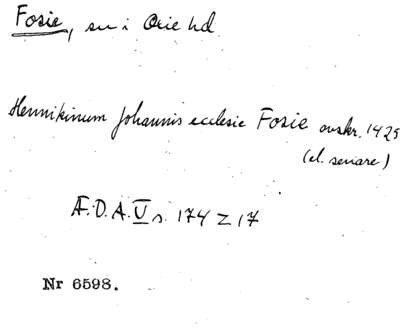 Fosie, sn i Oxie hd
Hennikinum Johannis ecclesie Fosie avskr. 1425
(el. senare)
Æ.D.A. V s. 174 Z 17
Nr 6598.